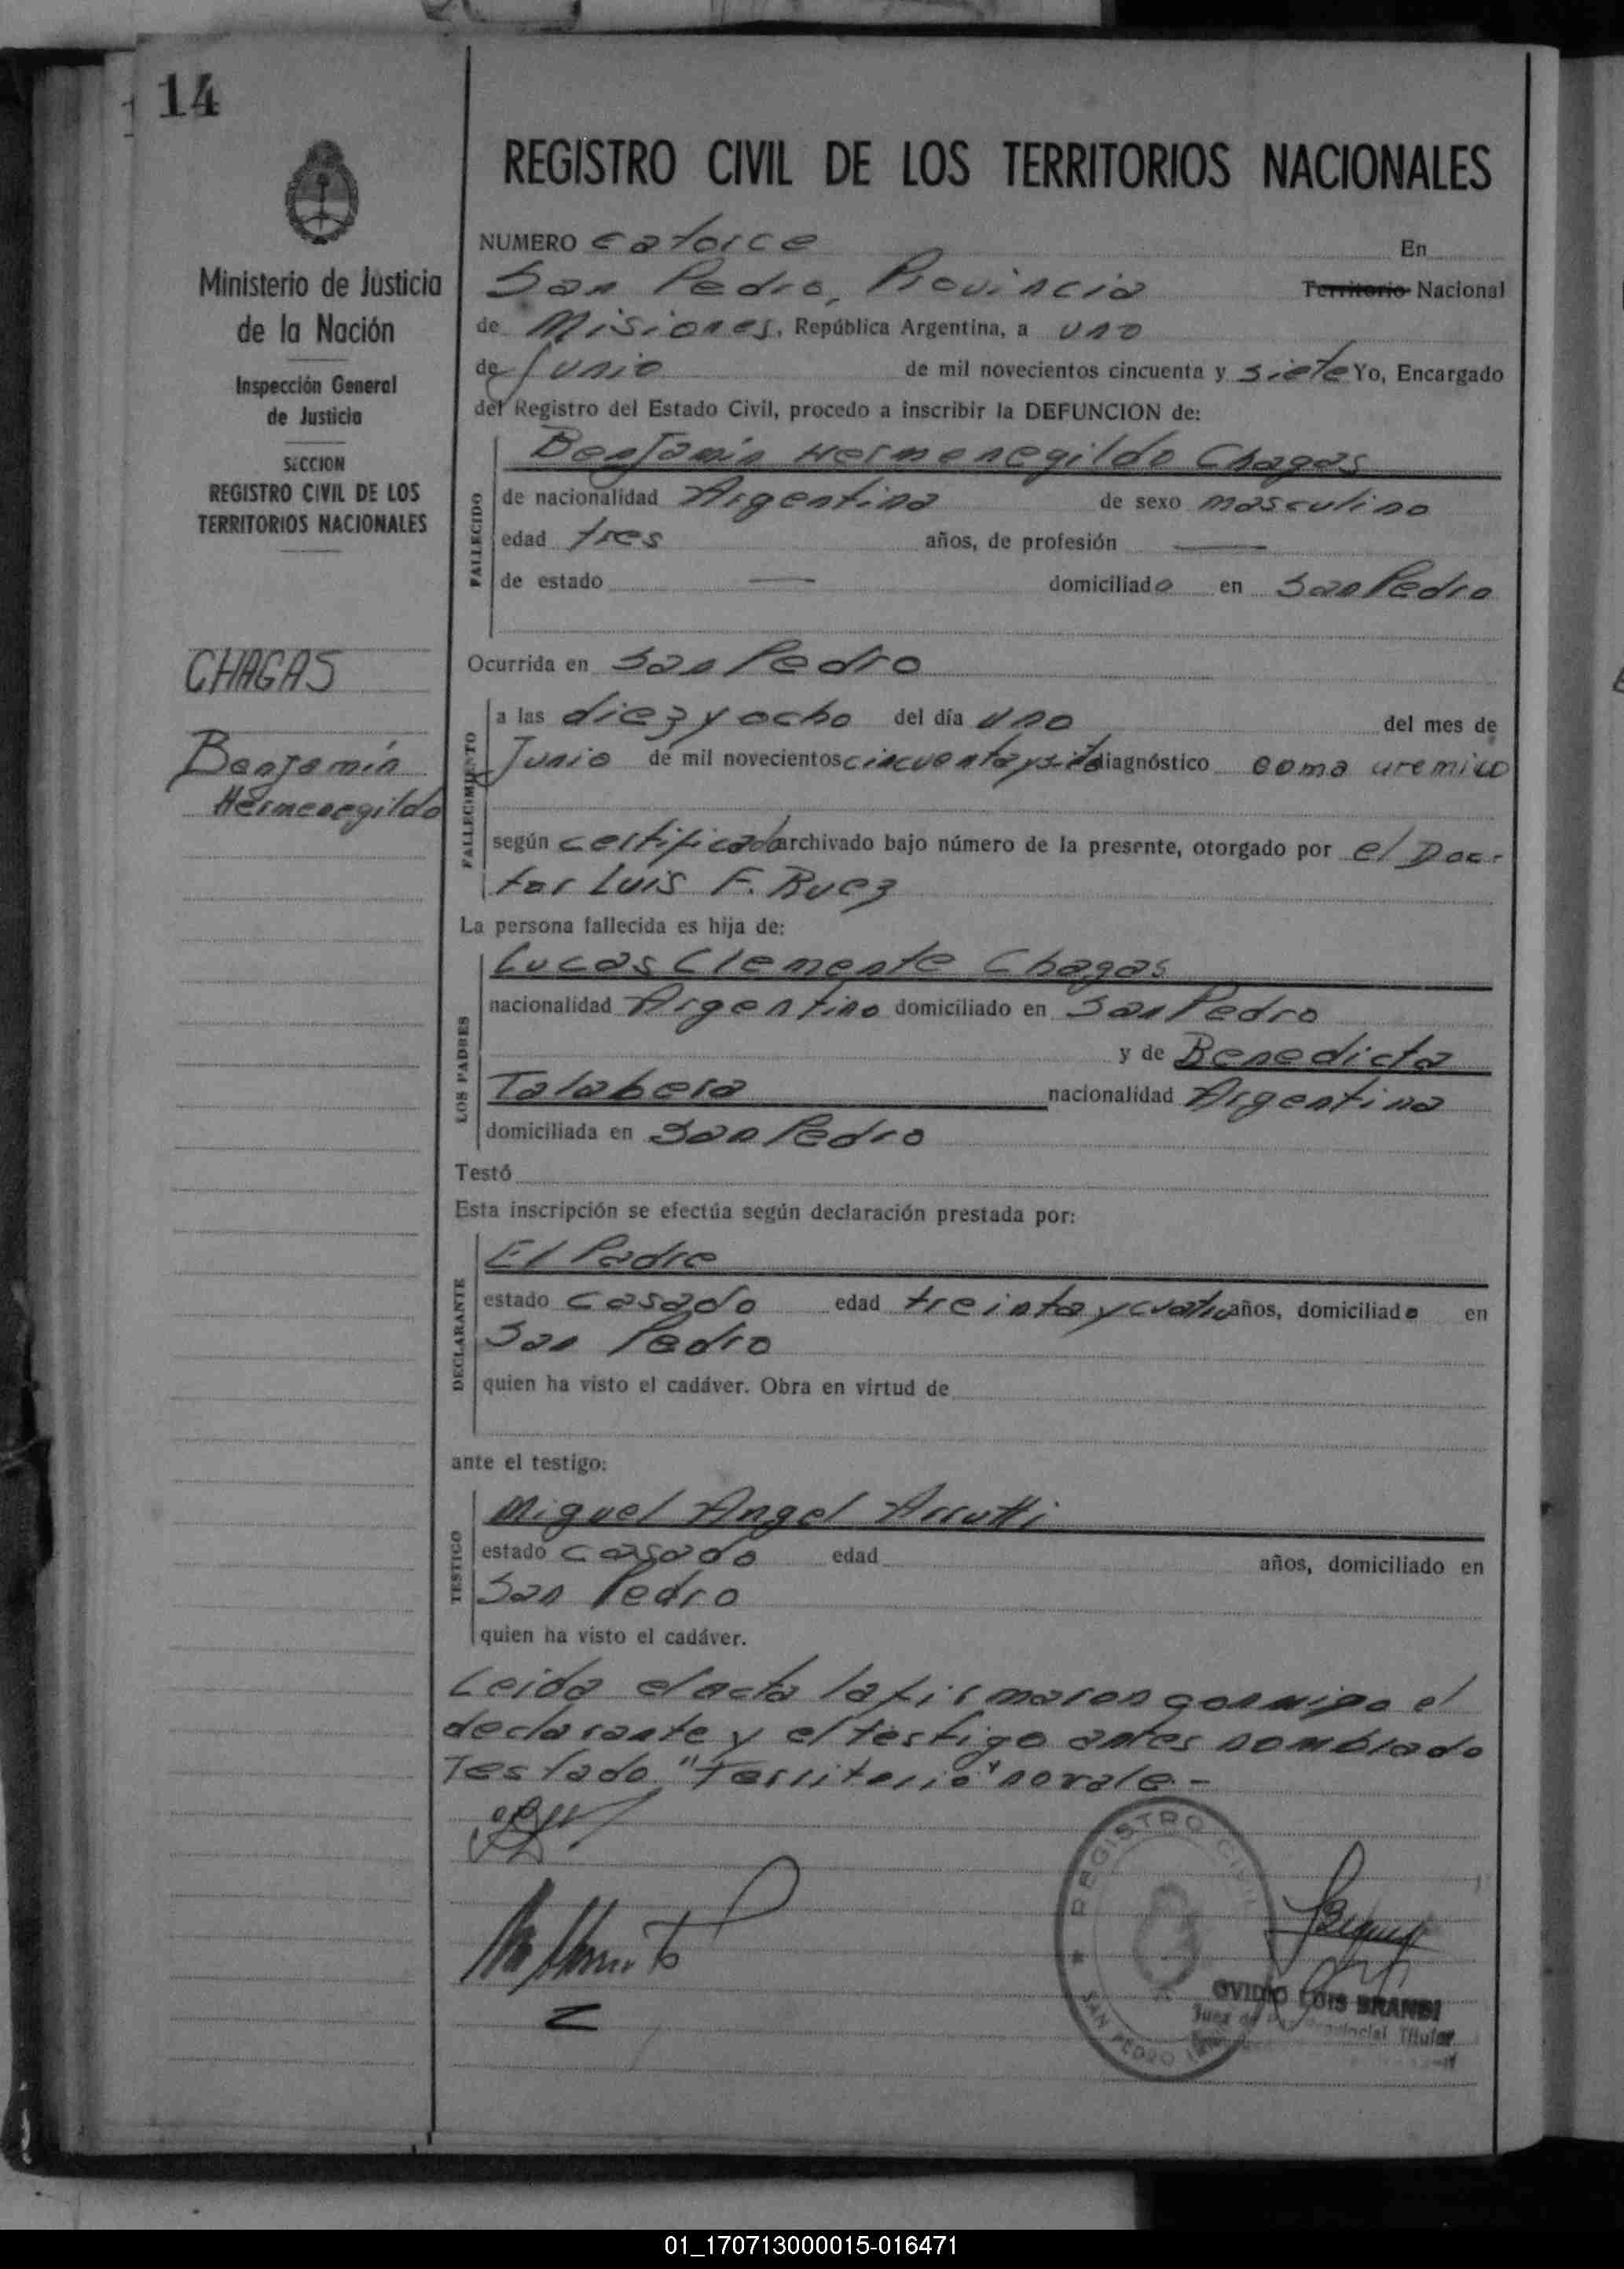 14
REGISTRO CIVIL DE LOS TERRITORIOS NACIONALES
Ministerio de Justicia
de la Nación
Inspección General
de Justicia
SECCION
REGISTRO CIVIL DE LOS
TERRITORIOS NACIONALES
CHAGAS
Benjamín
Hermenegildo
NUMERO catorce En
San Pedro, Provincia Territorio Nacional
de Misiones, República Argentina, a uno
de Junio de mil novecientos cincuenta y siete Yo, Encargado
del Registro del Estado Civil, procedo a inscribir la DEFUNCION de:
FALLECIDO
Benjamín Hermenegildo Chagas
de nacionalidad Argentina de sexo masculino
edad tres años, de profesión —
de estado — domiciliado en San Pedro
Ocurrida en San Pedro
FALLECIMIENTO
a las diez y ocho del día uno del mes de
Junio de mil novecientos cincuenta y siete diagnóstico coma uremico
según certificado archivado bajo número de la presente, otorgado por el Doc-
tor Luis F. Ruez
La persona fallecida es hija de:
LOS PADRES
Lucas Clemente Chagas
nacionalidad Argentino domiciliado en San Pedro
y de Benedicta
Talabera nacionalidad Argentina
domiciliada en San Pedro
Testó
Esta inscripción se efectúa según declaración prestada por:
DECLARANTE
El Padre
estado casado edad treinta y cuatro años, domiciliado en
San Pedro
quien ha visto el cadáver. Obra en virtud de
ante el testigo:
TESTIGO
Miguel Angel Arrutti
estado casado edad años, domiciliado en
San Pedro
quien ha visto el cadáver.
Leida el acta la firmaron conmigo el
declarante y el testigo antes nombrado
Testado "Territorio" no vale.-
REGISTRO CIVIL
SAN PEDRO
OVIDIO LUIS BRANDI
Juez de Paz Provincial Titular
01_170713000015-016471